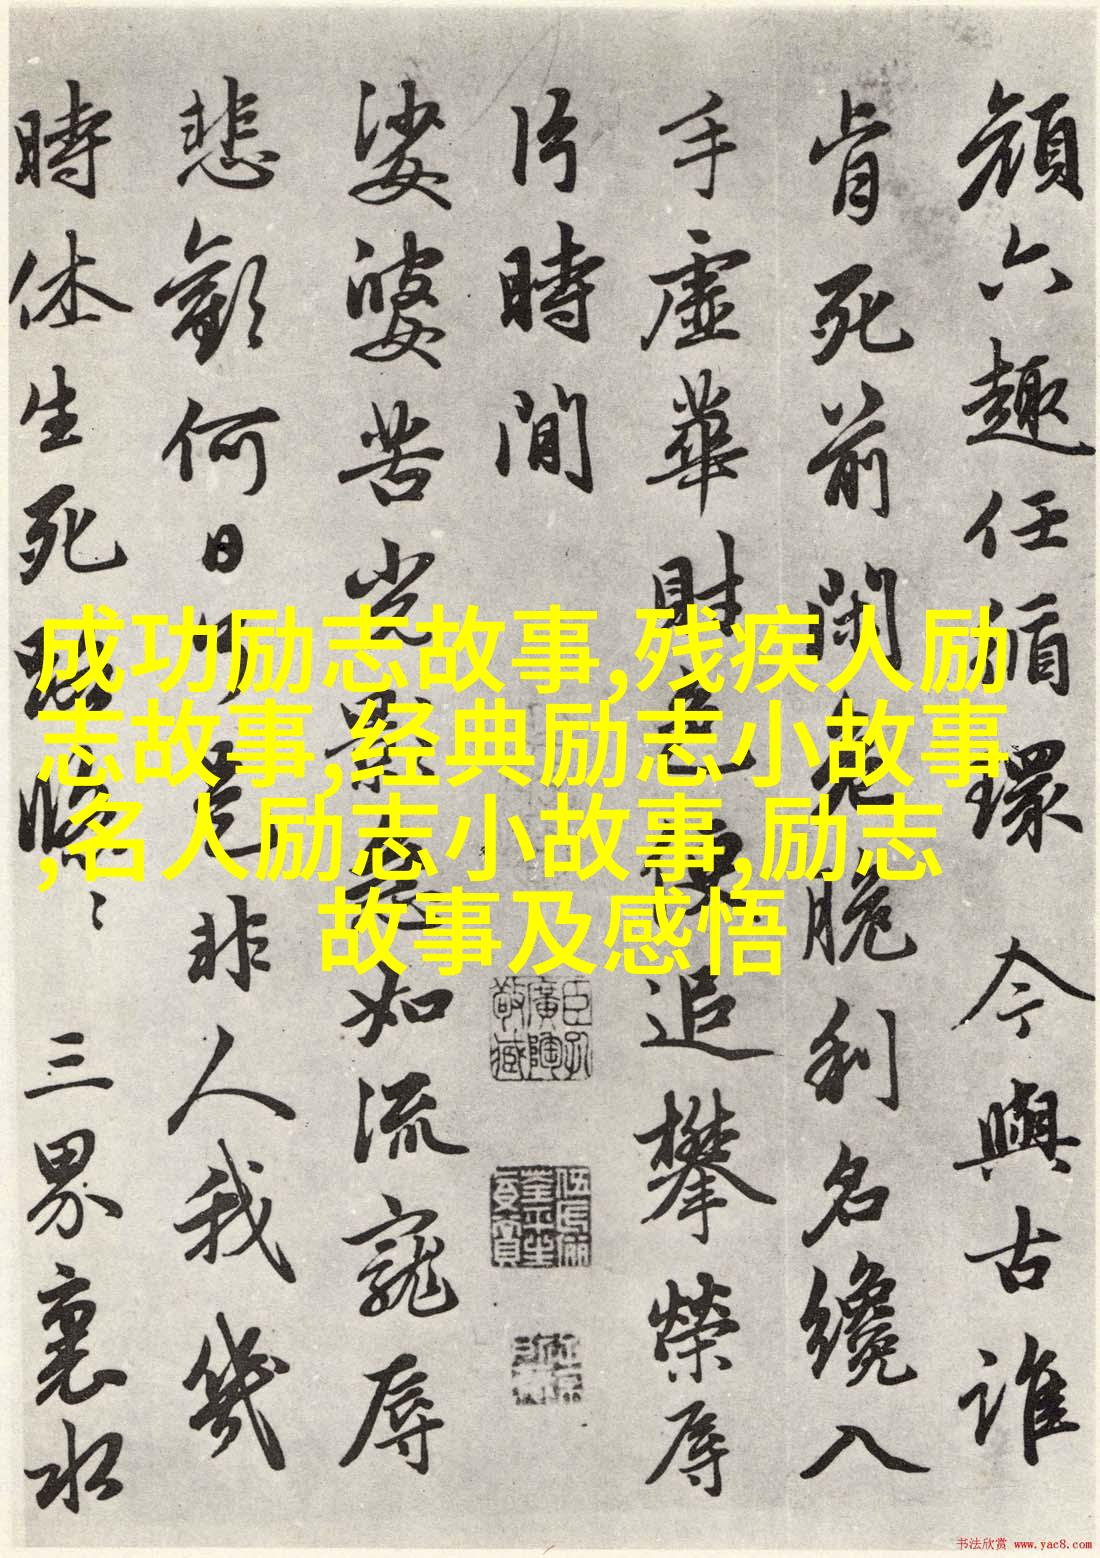 顔六趣任循環今與古誰
肯死前閑危脆利名纔入
手虛華財色更追攀榮辱
片時間
娑婆苦光影急如流寵辱
悲歡何日了是非人我幾
時休生死路悠悠三界裏水
成功励志故事,残疾人励
志故事,经典励志小故事
,名人励志小故事,励志
故事及感悟
书法欣赏 www.yac8.com